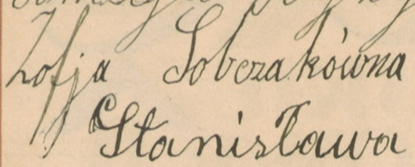 Zofja Sobczakówna
Stanisława